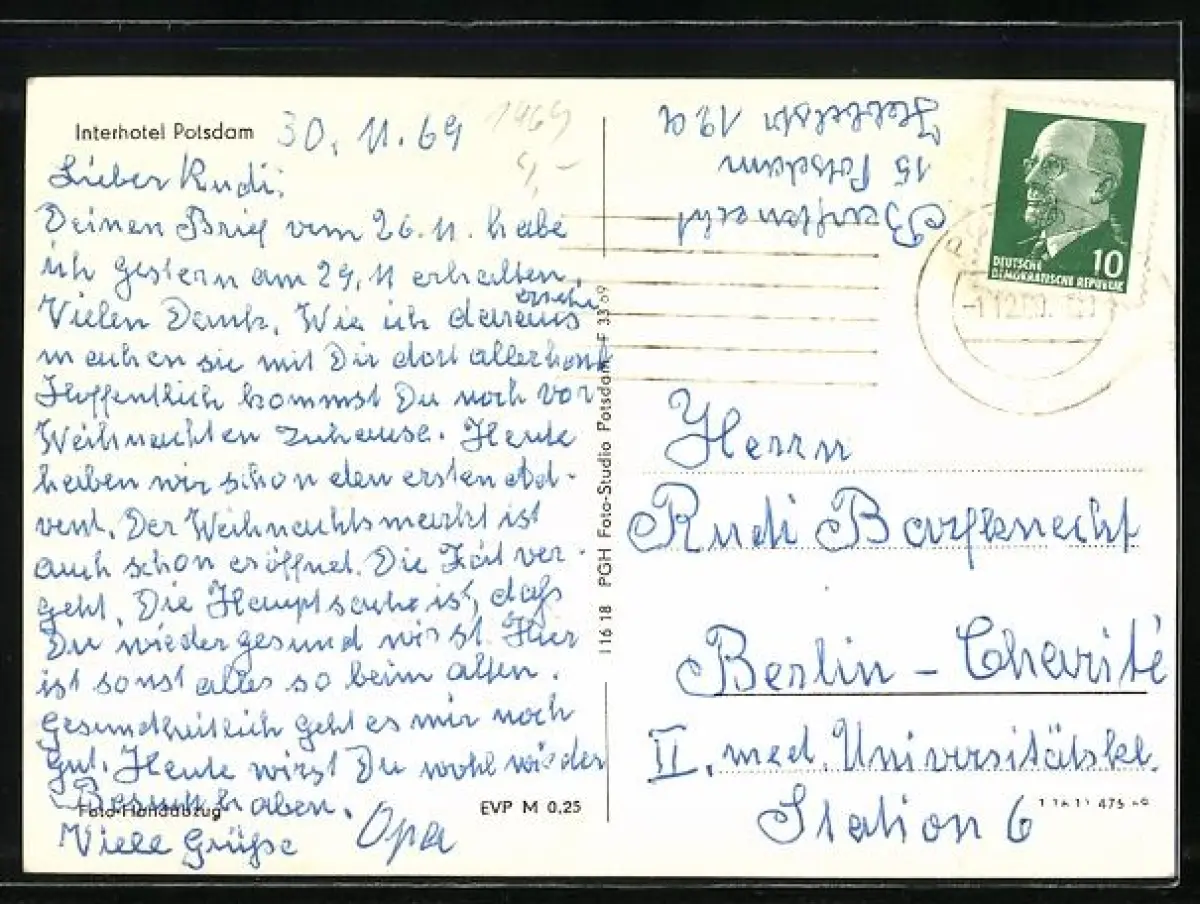 Interhotel Potsdam
30. 11. 69
1469
Lieber Rudi!
Deinen Brief vom 26. 11. habe
ich gestern am 29. 11 erhalten.
Vielen Dank. Wie ich daraus ersehe
machen sie mit Dir dort allerhand
Hoffentlich kommst Du noch vor
Weihnachten zuhause. Heute
haben wir schon den ersten Ad-
vent. Der Weihnachtsmarkt ist
auch schon eröffnet. Die Zeit ver-
geht. Die Hauptsache ist, daß
Du wieder gesund wirst. Hier
ist sonst alles so beim alten.
Gesundheitlich geht es mir noch
gut. Heute wirst Du wohl wieder
Besuch haben.
Foto-Handabzug
EVP M 0,25
Viele Grüße Opa
116 18 PGH Foto-Studio Potsdam F 33 69
Barfknecht
15 Potsdam
19a
10
DEUTSCHE
DEMOKRATISCHE REPUBLIK
Herrn
Rudi Barfknecht
Berlin - Charité
II. med. Universitätskl.
Station 6